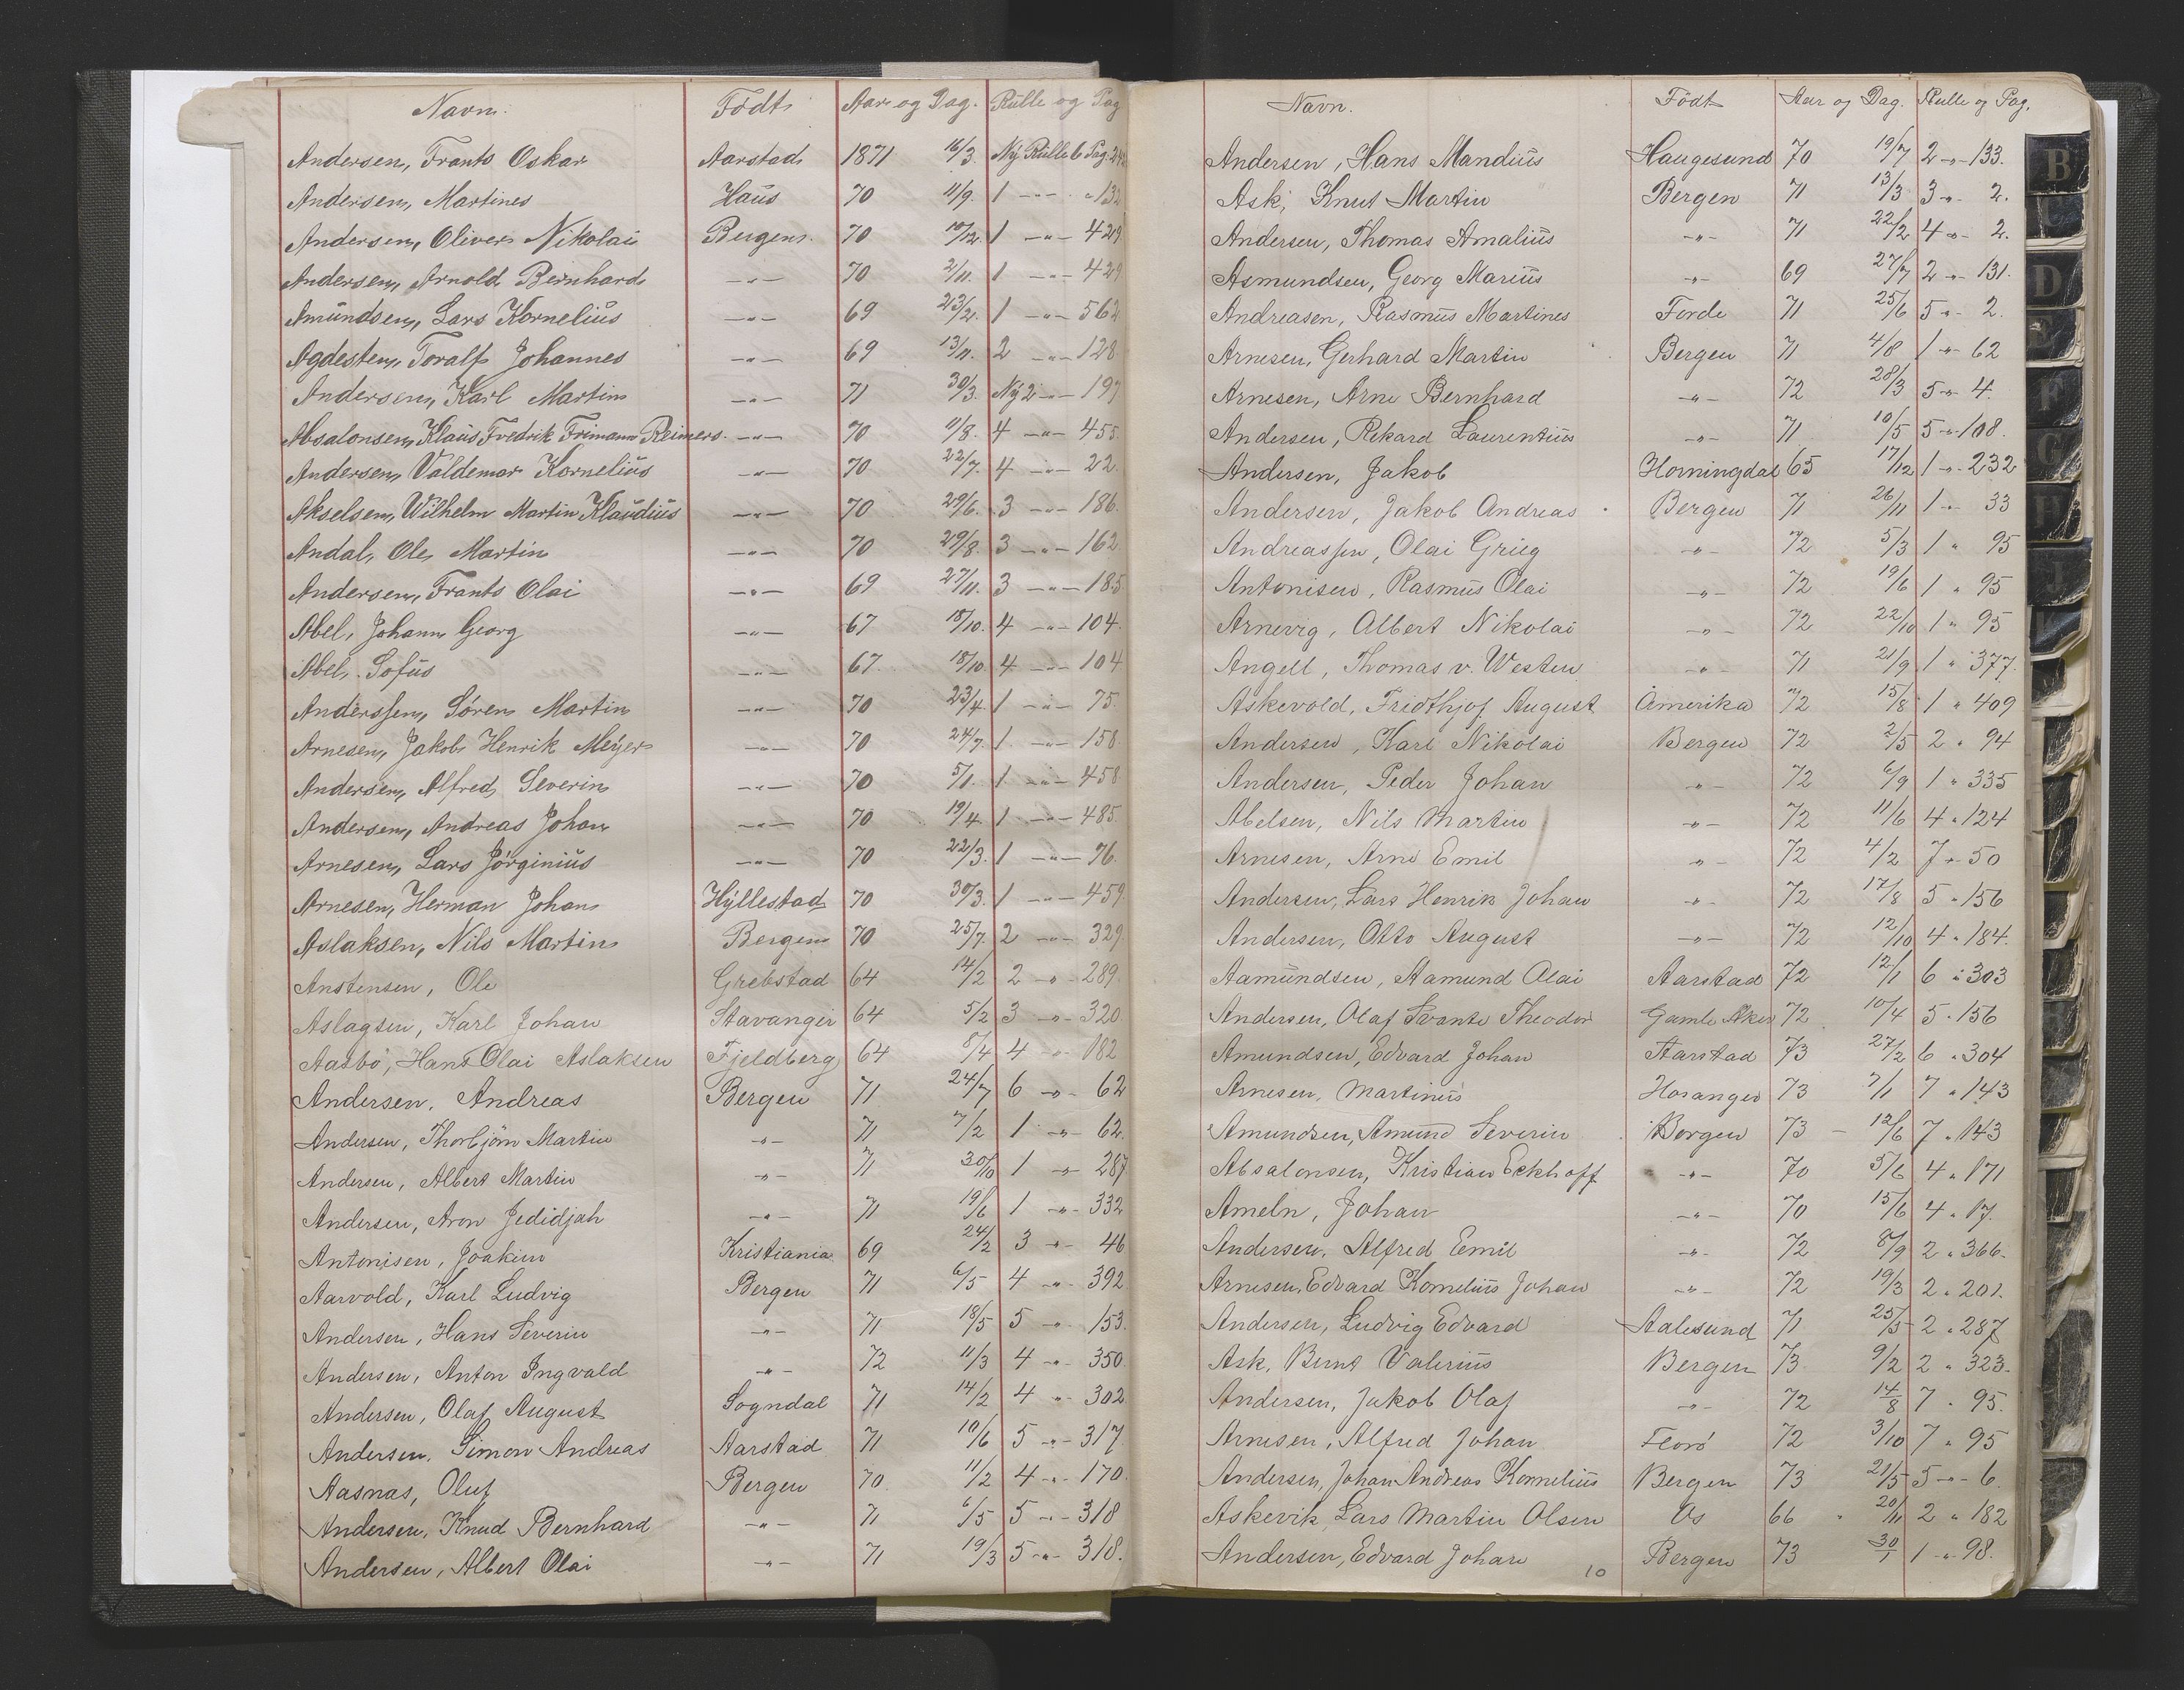 Navn. Født. Aar og Dag. Rulle og Pag
Andersen, Frants Oskar Aarstad 1871 16/3. Ny Rulle 6 Pag. 242
Andersen, Martines Haus 70 11/9. 1 -"- " 132
Andersen, Oliver Nikolai Bergen 70 10/12. 1 -"- 429
Andersen, Arnold Bernhard -"- 70 2/11. 1 -"- 429
Amundsen, Lars Kornelius -"- 69 23/2. 1 -"- 562
Agdesten, Toralf Johannes -"- 69 13/11. 2 -"- 128
Andersen, Karl Martin -"- 71 30/3. Ny 2 -"- 197
Absalonsen, Klaus Fredrik Frimann Reimers. -"- 70 11/8. 4 -"- 455.
Andersen, Valdemar Kornelius -"- 70 22/7. 4 -"- 22.
Akselsen, Wilhelm Martin Klaudius -"- 70 29/6. 3 -"- 186.
Andal, Ole Martin -"- 70 29/8. 3 -"- 162
Andersen, Frants Olai -"- 69 27/11. 3 -"- 185.
Abel, Johan Georg -"- 67 18/10. 4 -"- 104.
Abel, Sofus -"- 67. 18/10 4 -"- 104
Anderssen, Sören Martin -"- 70 23/4. 1 -"- 75.
Arnesen, Jakob Henrik Meyer -"- 70 24/7. 1. -"- 158.
Andersen, Alfred Severin -"- 70 5/1. 1 -"- 458.
Andersen, Andreas Johan -"- 70 19/4. 1 -"- 485.
Arnesen, Lars Jörginius -"- 70 22/3. 1 -"- 76.
Arnesen, Herman Johan Hyllestad 70 30/3. 1 -"- 459.
Aslaksen, Nils Martin Bergen 70 25/7. 2 -"- 329.
Anstensen, Ole Grebstad 64 14/2 2 -"- 289.
Aslagsen, Karl Johan Stavanger 64 5/2 3 -"- 320.
Aasbö, Hans Olai Aslaksen Fjeldberg 64 8/4 4 -"- 182
Andersen, Andreas Bergen 71 24/7 6 -"- 62
Andersen, Thorbjörn Martin -"- 71 7/2 1 -"- 62.
Andersen, Albert Martin -"- 71 30/10 1 -"- 287
Andersen, Aron Jedidjah -"- 71 19/6 1 -"- 332
Antonisen, Joakim Kristiania 69 24/2 3 -"- 46
Aarvold, Karl Ludvig Bergen 71 6/5 4 -"- 392
Andersen, Hans Severin -"- 71 18/5 5 -"- 153.
Andersen, Anton Ingvald -"- 72 11/3 4 -"- 350.
Andersen, Olaf August Sogndal 71 14/2 4 -"- 302
Andersen, Simon Andreas Aarstad 71 10/6 5 -"- 317.
Aasnas, Oluf Bergen 70. 11/2 4 -"- 170.
Andersen, Knud Bernhard -"- 71 6/5 5 -"- 318
Andersen, Albert Olai -"- 71 19/3 5 -"- 318.
Navn. Født Aar og Dag. Rulle og Pag.
Andersen, Hans Mandius Haugesund 70 19/7 2 -"- 133.
Ask, Knut Martin Bergen 71 13/3 3 -"- 2.
Andersen, Thomas Amalius -"- 71 22/2 4 -"- 2.
Asmundsen, Georg Marius -"- 69 27/7 2 -"- 131.
Andreasen, Rasmus Martines Förde 71 25/6 5 -"- 2.
Arnesen, Gerhard Martin Bergen 71 4/8 1 -"- 62
Arnesen, Arne Bernhard -"- 72 28/3 5 -"- 4.
Andersen, Rikard Laurentius -"- 71 10/5 5 -"- 108.
Andersen, Jakob Horningdal 65 17/12 1 -"- 232
Andersen, Jakob Andreas Bergen 71 26/11 1 -"- 33
Andreassen, Olai Grieg -"- 72 5/3 1 " 95
Antonisen, Rasmus Olai -"- 72 19/6 1 " 95
Arnevig, Albert Nikolai -"- 72 22/10 1 " 95
Angell, Thomas v. Westen -"- 71 21/9 1 " 377.
Askevold, Fridthjof August Amerika 72 15/8 1 " 409
Andersen, Karl Nikolai Bergen 72 2/5 2 " 94
Andersen, Peder Johan -"- 72 6/9 1 " 335
Abelsen, Nils Martin -"- 72 11/6 4 " 124
Arnesen, Arne Emil -"- 72 4/2 7 -"- 50
Andersen, Lars Henrik Johan -"- 72 17/8 5 " 156
Andersen, Otto August -"- 72 12/10 4 " 184.
Aamundsen, Aamund Olai Aarstad 72 12/1 6 " 303
Andersen, Olaf Svante Theodor Gamle Aker 72 10/4 5 " 156
Amundsen, Edvard Johan Aarstad 73 27/2 6 " 304
Arnesen, Martinus Hosanger 73 7/1 7 " 143
Amundsen, Amund Severin Bergen 73 - 12/6 7 " 143
Absalonsen, Kristian Eckhoff -"- 70 5/6 4 " 171
Ameln, Johan -"- 70 15/6 4 " 17.
Andersen, Alfred Emil -"- 72 8/9 2 " 366.
Arnesen, Edvard Kornelius Johan -"- 72 19/3 2 " 201.
Andersen, Ludvig Edvard Aalesund 71 25/5 2 " 287
Ask, Bernt Valerius Bergen 73 9/2 2 " 323.
Andersen, Jakob Olaf -"- 72 14/8 7 " 95.
Arnesen, Alfred Johan Florö 72 3/10 7 " 95
Andersen, Johan Andreas Kornelius Bergen 73 21/5 5 -"- 6.
Askevik, Lars Martin Olsen Os 66 " 20/11 2 " 182
Andersen, Edvard Johan Bergen 73 30/1 1 -"- 98.
10
B
C
D
E
F
G
H
J
K